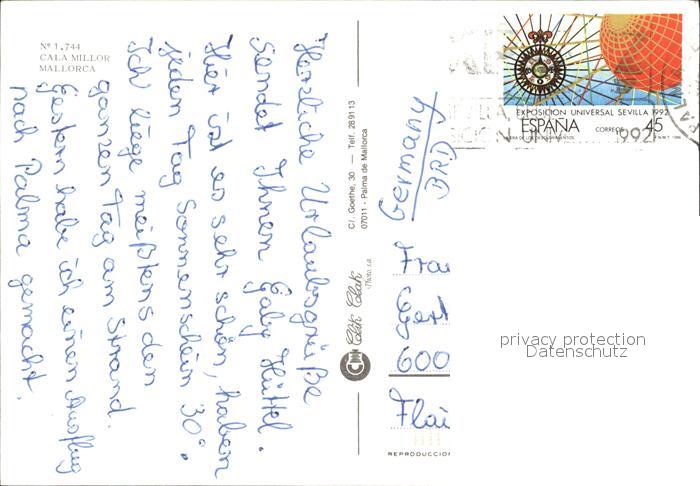 Nº 1.744
CALA MILLOR
MALLORCA
Herzliche Urlaubsgrüße
Sendet Ihnen Gaby Hüttel.
Hier ist es sehr schön, haben
jeden Tag Sonnenschein 30°.
Ich liege meißtens den
ganzen Tag am Strand.
Gestern habe ich einen Ausflug
nach Palma gemacht.
C/. Goethe, 30 — Telf. 289113
07011 - Palma de Mallorca
Clik Clak
Photo, s.a.
EXPOSICION UNIVERSAL SEVILLA 1992
ESPAÑA CORREOS 45
1992
Germany
BRD
Frau
600
REPRODUCCIO
privacy protection
Datenschutz